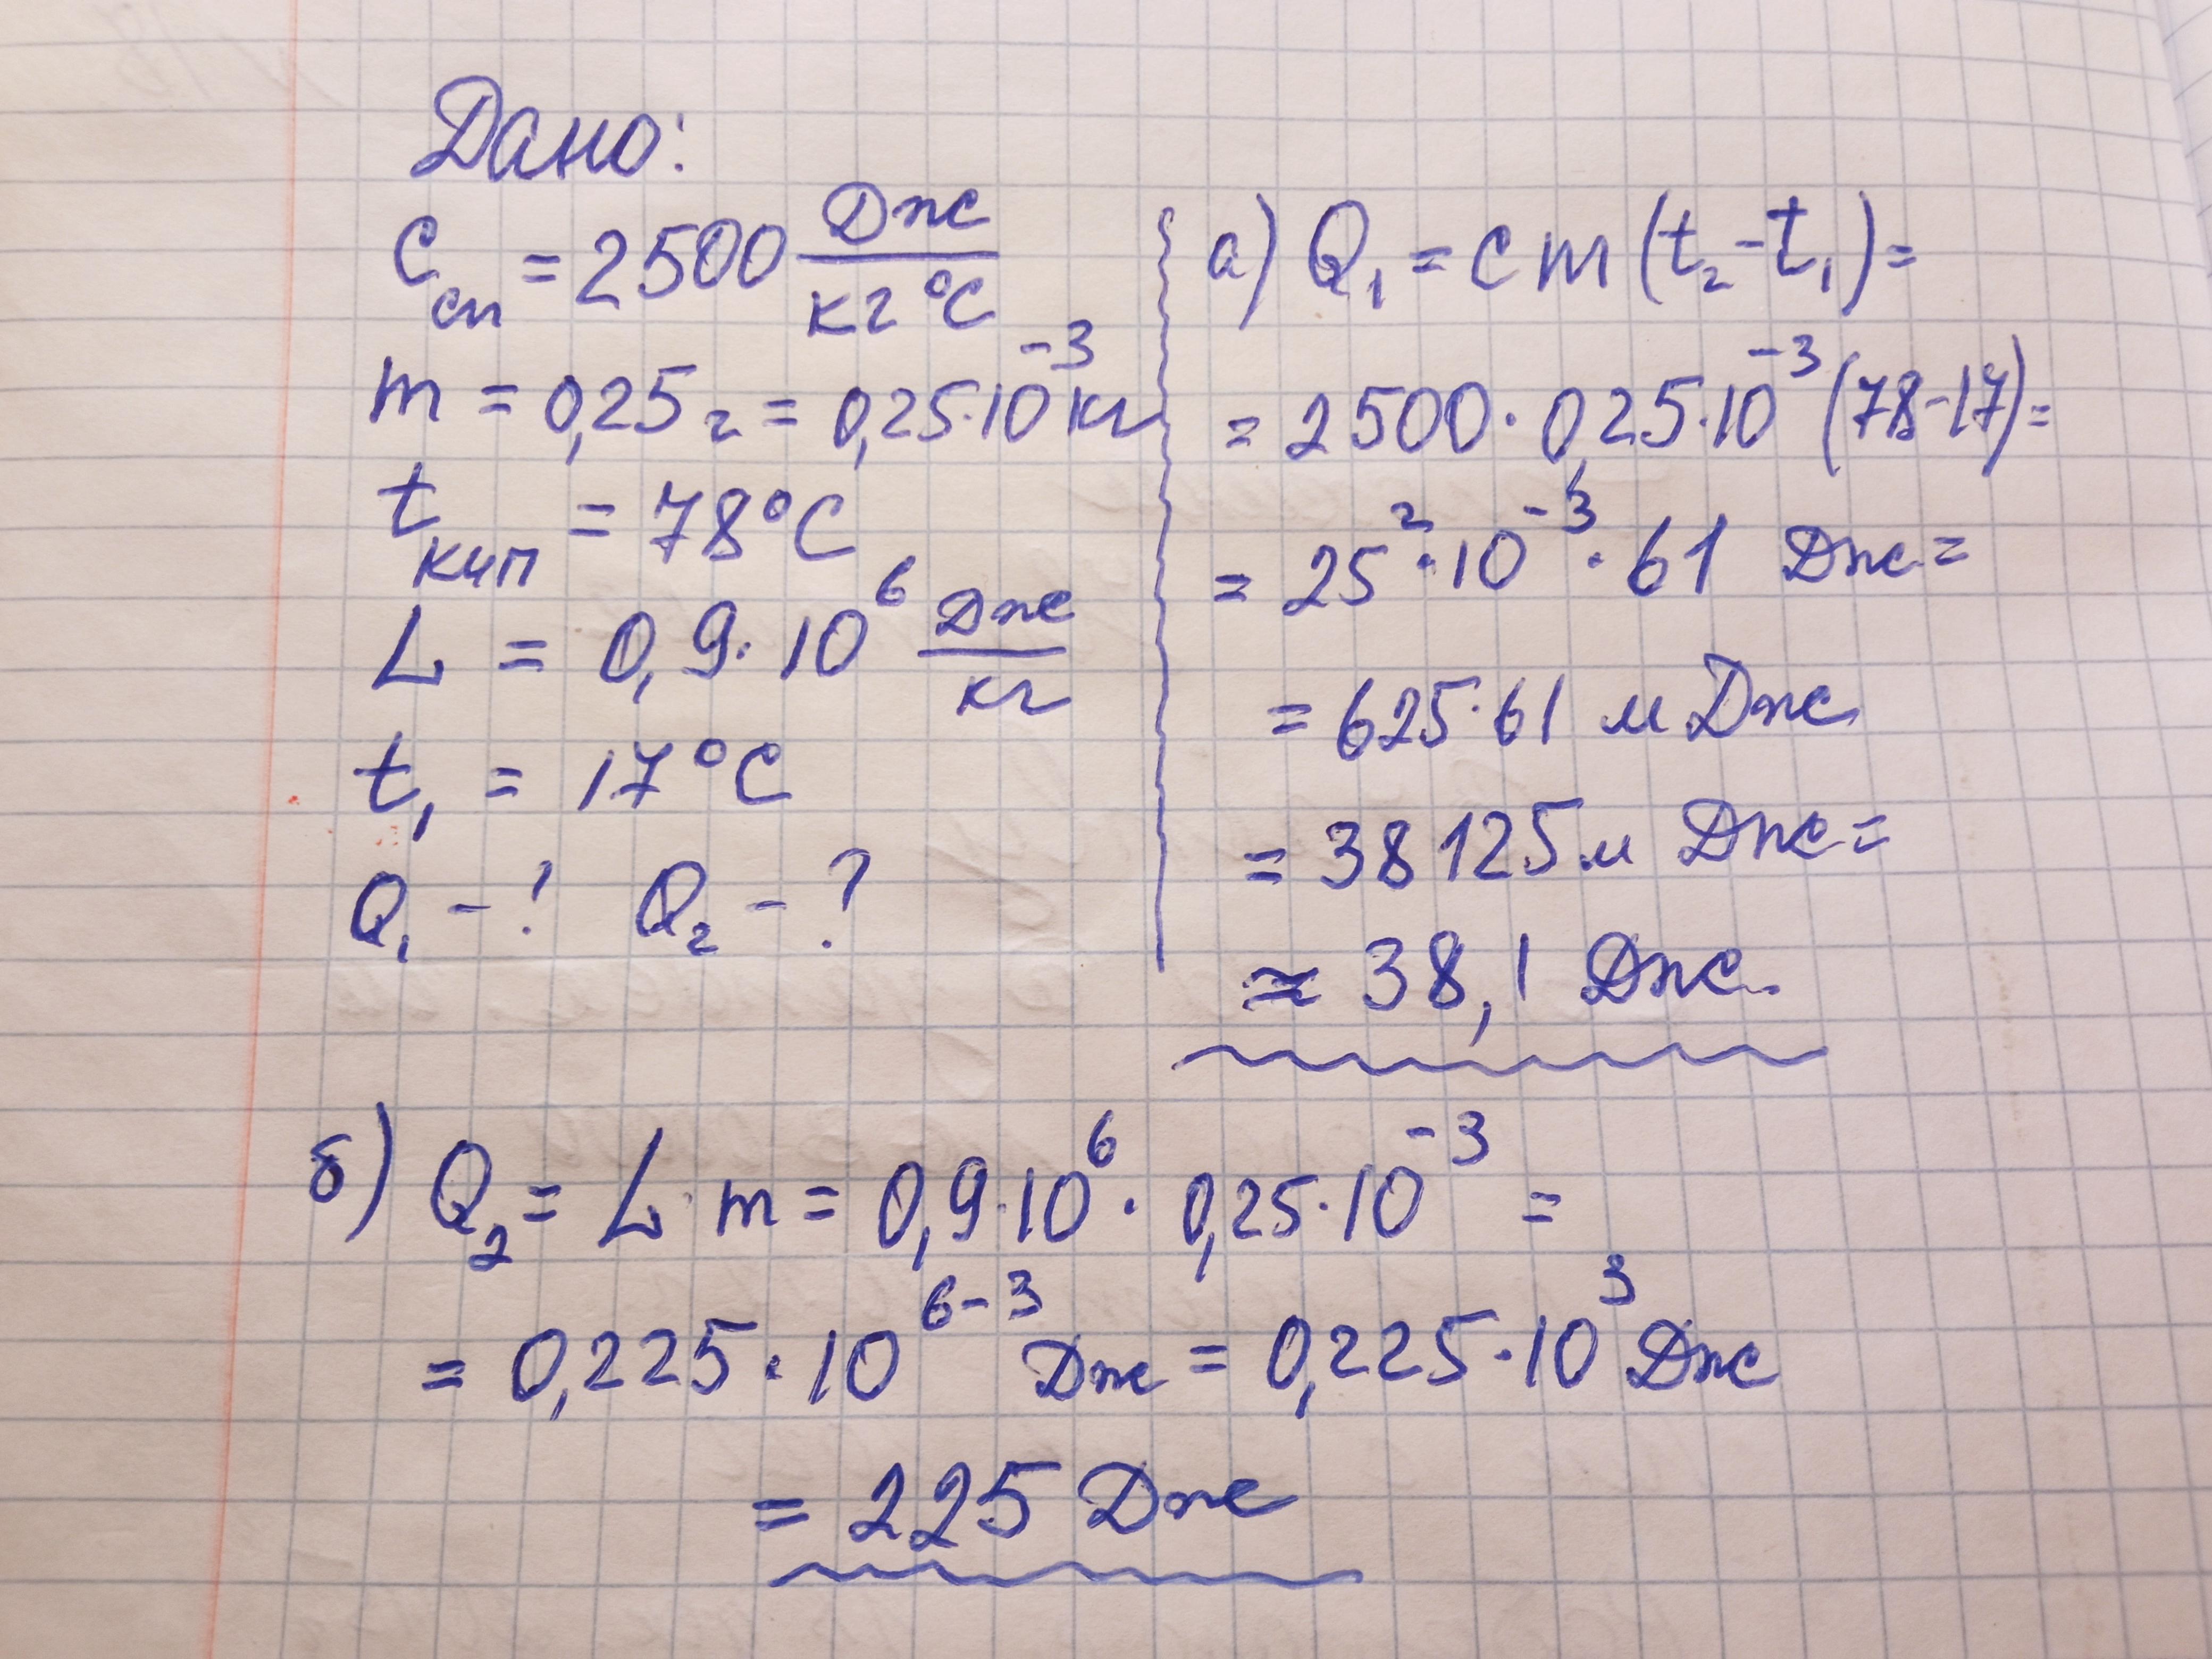 Дано:
C сп = 2500 Дж/кг °C
m = 0,25 г = 0,25·10⁻³ кг
t кип = 78°C
L = 0,9·10⁶ Дж/кг
t₁ = 17°C
Q₁ - ? Q₂ - ?
а) Q₁ = c m (t₂ - t₁) =
= 2500 · 0,25·10⁻³ (78-17) =
= 25²·10⁻³ · 61 Дж =
= 625·61 мДж
= 38125 мДж =
≈ 38,1 Дж.
б) Q₂ = L · m = 0,9·10⁶ · 0,25·10⁻³ =
= 0,225 · 10⁶⁻³ Дж = 0,225·10³ Дж
= 225 Дж